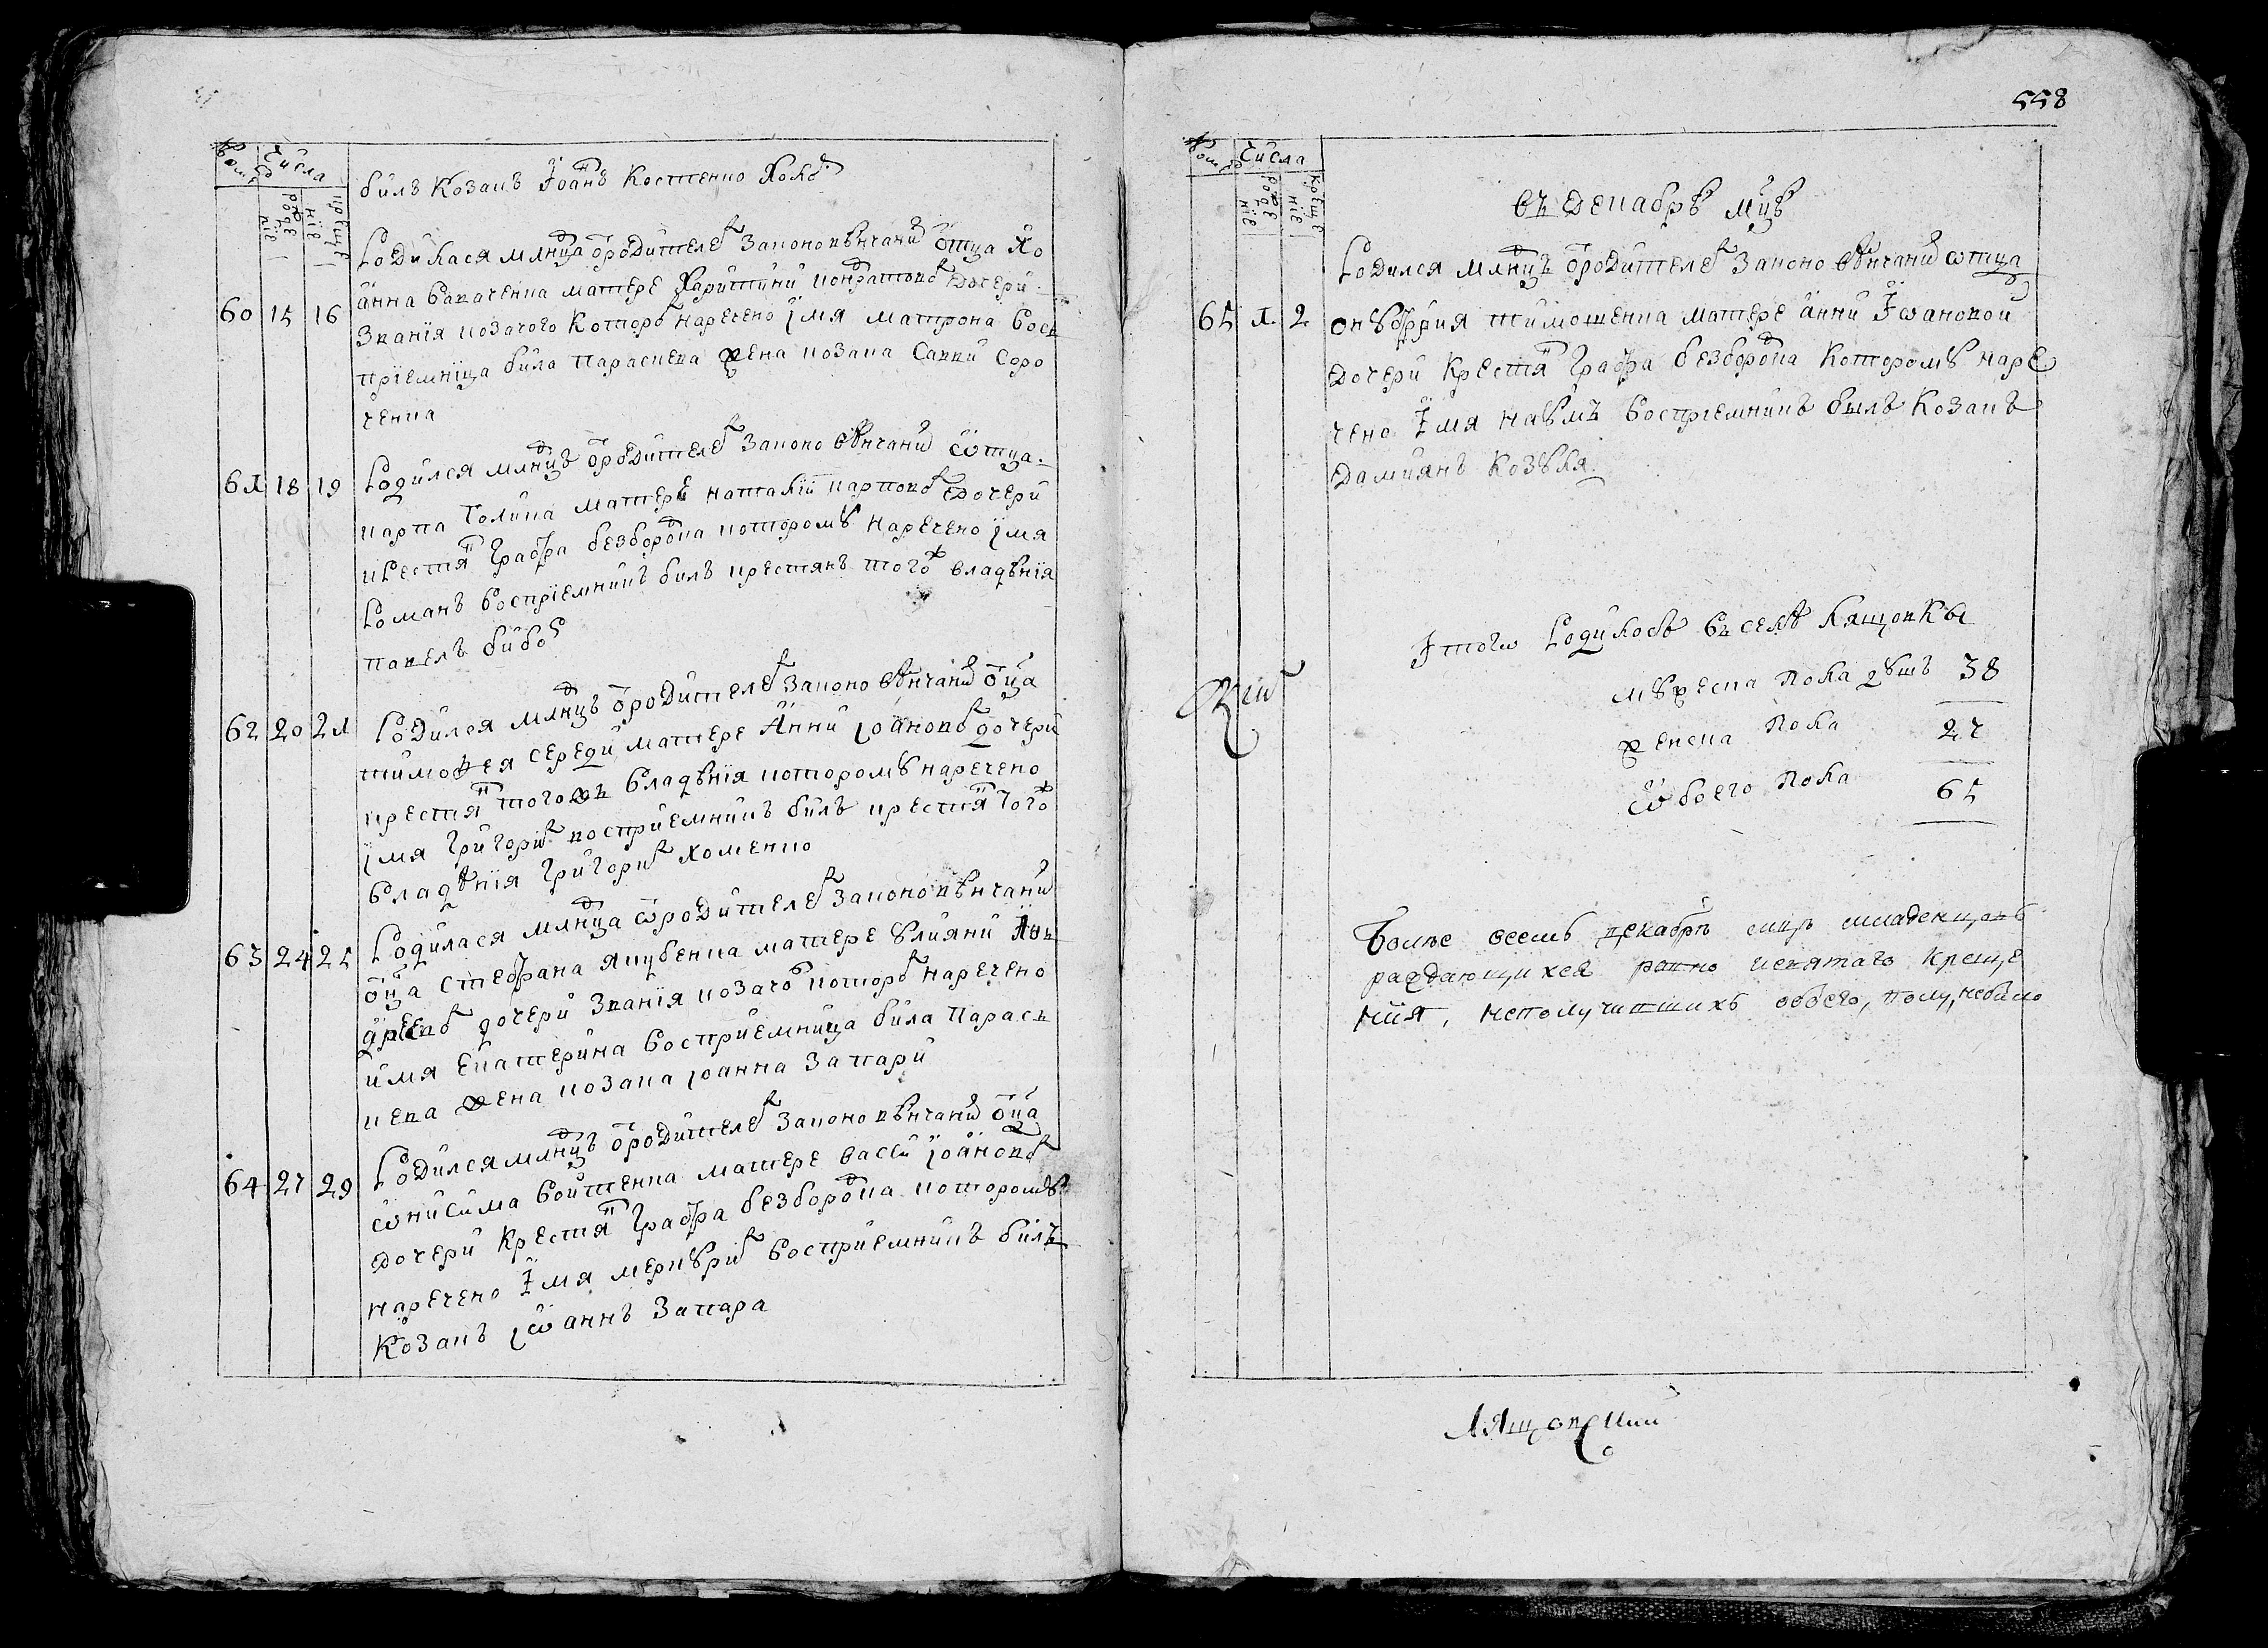 Числа
рожде
ніе
креще
ніе
билъ Козакъ Іоанъ Костенко
60 15 16
Родилася млнца ѿ родителей законовѣнчаний ѿтца Ио
анна Бакаченка матере Харитини кондратовой дочери
званія козачого которой наречено імя матрона Восъ
пріемніца била Параскева жена козака Савки Соро
ченка
61 18 19
Родился млнцъ ѿ родителей законо вѣнчаний ѿтца
карпа Голика матери наталіи карповой дочери
крестя графа безбородка которому наречено імя
Романъ Воспріемникъ билъ крестянъ того владѣнія
Павелъ бибо
62 20 21
Родился млнцъ ѿ родителей законо вѣнчаний ѿца
тимофея середи матере Анни іоановой дочери
крестя того жъ владѣнія которому наречено
імя Григорий воспріемникъ билъ крестя того
владѣнія Григорий хоменко
63 24 25
Родилася млнца ѿ родителей законовѣнчаний
ѿца стефана якубенка матере улияни Ан
дреевой дочери званія козачо которой наречено
имя Екатерина Восприемница била Парась
кева жена козака іоанна Запари
64 27 29
Родился млнцъ ѿ родителей законо вѣнчаний ѿца
ѡнисима Войтенка матере васси іоановой
дочери Крестя графа безбородка которому
наречено Імя меркурий Восприемникъ билъ
Козакъ іѡаннъ Запара
558
Числа
рожде
ніе
креще
ніе
въ декабрѣ мцѣ
65 1 2
Родился млнцъ ѿ родителей законо вѣнчаний ѿтца
онуфрия тимошенка матере анни Іѡановой
дочери Крестя графа безбородка Которому наре
чено Імя наумъ Воспріемникъ былъ Козакъ
Дамиянъ Козуля
Ітого Родилось въ селѣ Лящовкы
мужеска пола душъ 38
женска пола 27
ѡбоего пола 65
Болѣе всемъ декабрѣ мцѣ младенцовъ
раждающихся равно и святаго креще
нія, неполучившихъ обоего, полу, небыло